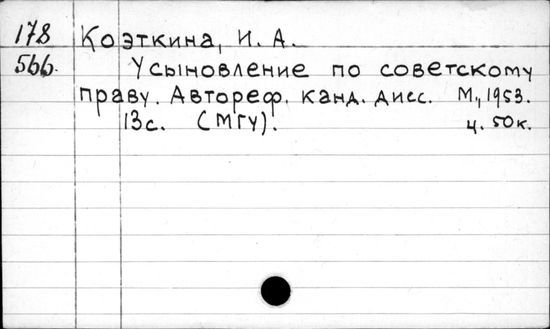 178 Коэткина, И. А.
566. Усыновление по советскому
праву. Автореф. канд. дисс. М., 1953.
13с. (МГУ). ц. 50к.